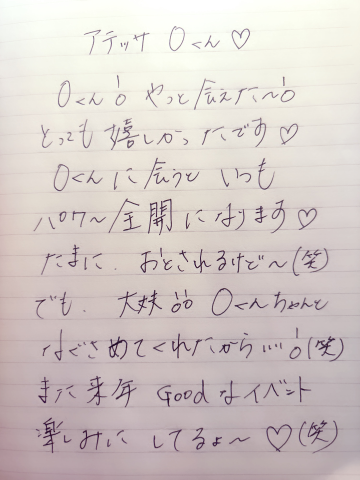 アテッサ Oくん♡
Oくん!! やっと会えた〜!!
とっても嬉しかったです♡
Oくんに会うと いつも
パワ〜全開になります♡
たまに、おとされるけど〜(笑)
でも、大妹!!! Oくんちゃんと
なぐさめてくれたから……!!(笑)
また来年 Goodなイベント
楽しみに してるょ〜♡(笑)